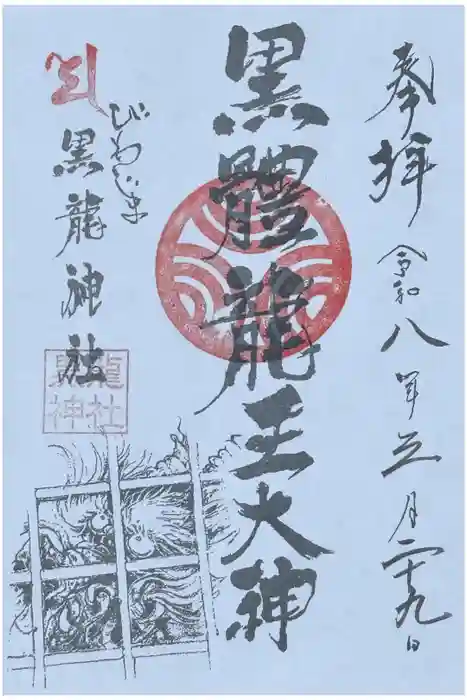 奉拝
令和八年三月二十九日
黒體龍王大神
びわじま
黒龍神社
黒龍
神社